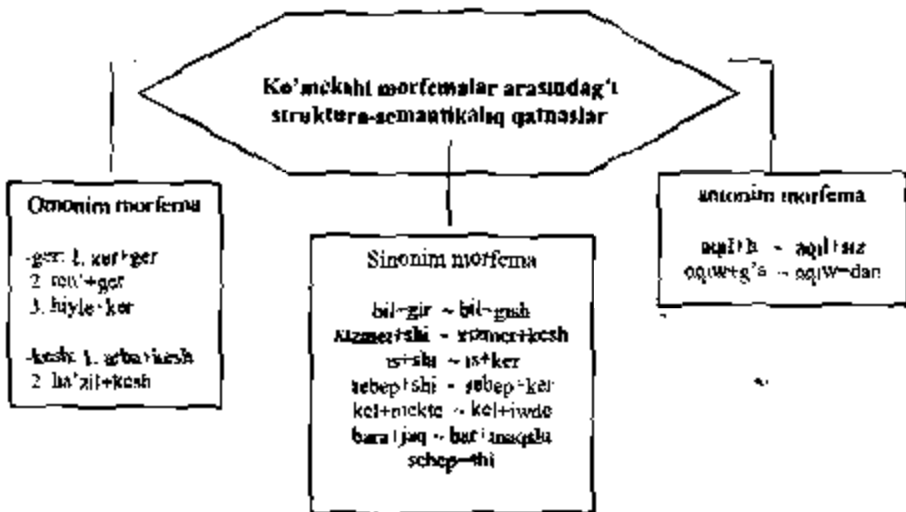 Ko'mekshi morfemalar arasındag'ı
struktura-semantikalıq qatnaslar
Omonim morfema
-ger: 1. zer+ger
2. ten'+ger
3. hiyle+ker
-kesh: 1. arba+kesh
2. ha'zil+kesh
Sinonim morfema
bil+gir ~ bil+gish
xızmet+shi ~ xızmet+kesh
is+shi ~ is+ker
sebep+shi ~ sebep+ker
kel+mekte ~ kel+iwde
bara+jaq ~ bar+maqshı
sebep+shi
antonim morfema
aqıl+lı ~ aqıl+sız
oqıw+g'a ~ oqıw+dan